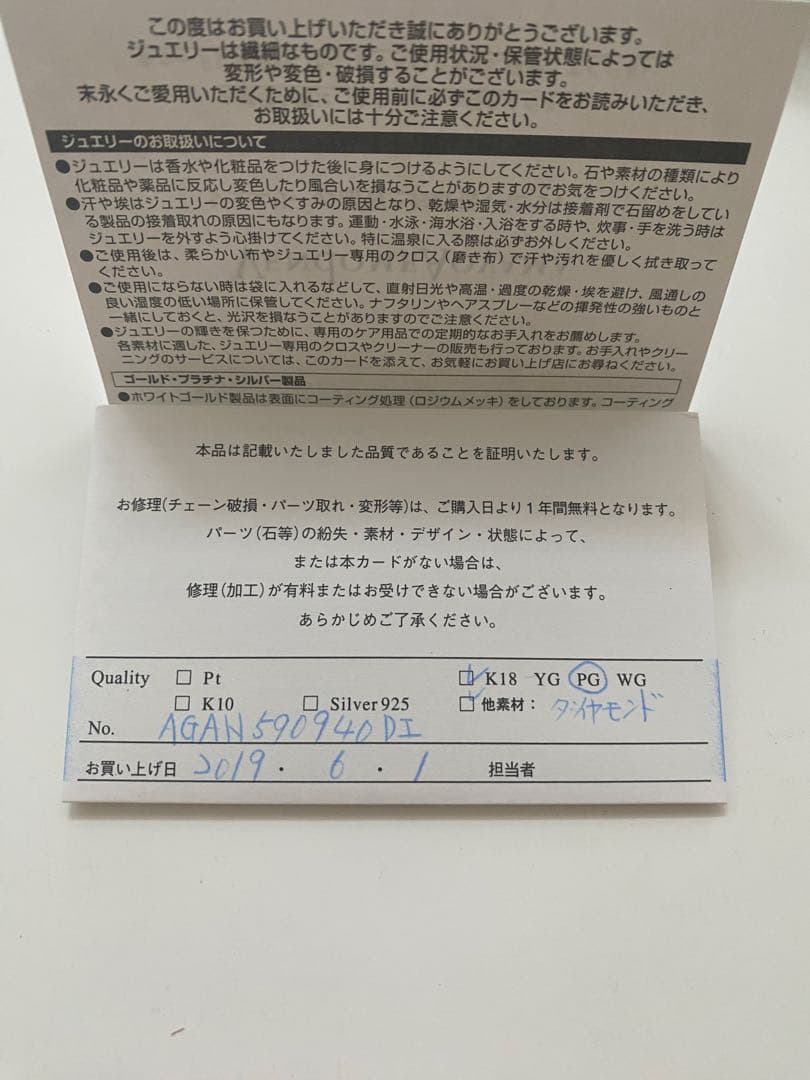 この度はお買い上げいただき誠にありがとうございます。
ジュエリーは繊細なものです。ご使用状況・保管状態によっては
変形や変色・破損することがございます。
末永くご愛用いただくために、ご使用前に必ずこのカードをお読みいただき、
お取扱いには十分ご注意ください。
ジュエリーのお取扱いについて
●ジュエリーは香水や化粧品をつけた後に身につけるようにしてください。石や素材の種類により
化粧品や薬品に反応し変色したり風合いを損なうことがありますのでお気をつけください。
●汗や埃はジュエリーの変色やくすみの原因となり、乾燥や湿気・水分は接着剤で石留めをしてい
る製品の接着取れの原因にもなります。運動・水泳・海水浴・入浴をする時や、炊事・手を洗う時は
ジュエリーを外すよう心掛けてください。特に温泉に入る際は必ずお外しください。
●ご使用後は、柔らかい布やジュエリー専用のクロス（磨き布）で汗や汚れを優しく拭き取って
ください。
●ご使用にならない時は袋に入れるなどして、直射日光や高温・過度の乾燥・埃を避け、風通しの
良い湿度の低い場所に保管してください。ナフタリンやヘアスプレーなどの揮発性の強いものと
一緒にしておくと、光沢を損なうことがありますのでご注意ください。
●ジュエリーの輝きを保つために、専用のケア用品での定期的なお手入れをお薦めします。
各素材に適した、ジュエリー専用のクロスやクリーナーの販売も行っております。お手入れやクリー
ニングのサービスについては、このカードを添えて、お気軽にお買い上げ店にお尋ねください。
ゴールド・プラチナ・シルバー製品
●ホワイトゴールド製品は表面にコーティング処理（ロジウムメッキ）をしております。コーティング
本品は記載いたしました品質であることを証明いたします。
お修理(チェーン破損・パーツ取れ・変形等)は、ご購入日より1年間無料となります。
パーツ(石等)の紛失・素材・デザイン・状態によって、
または本カードがない場合は、
修理(加工)が有料またはお受けできない場合がございます。
あらかじめご了承ください。
Quality □ Pt ☑ K18 YG PG WG
□ K10 □ Silver925 ☑ 他素材： ダイヤモンド
No. AGAN590940DI
お買い上げ日 2019・6・1 担当者